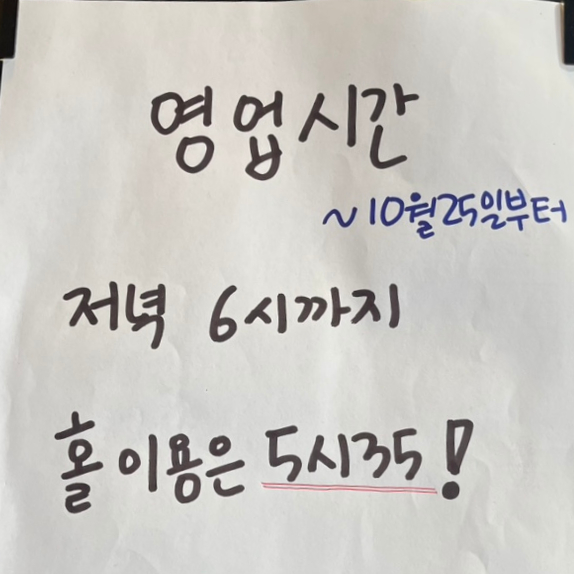 영업시간
~10월25일부터
저녁 6시까지
홀 이용은 5시35!